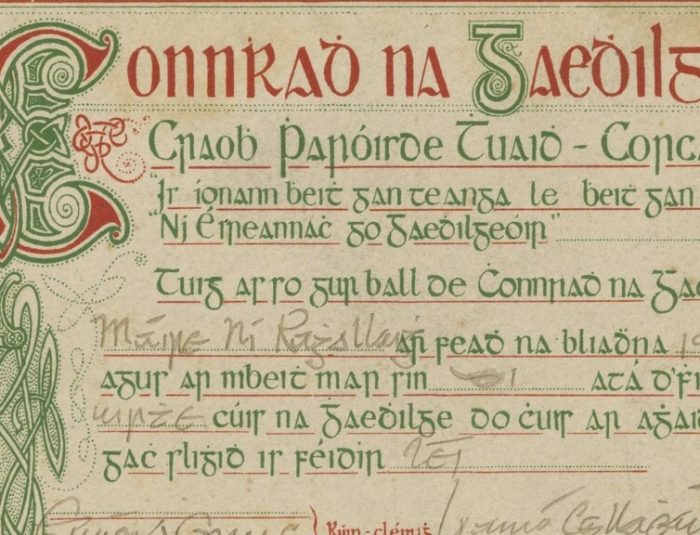 Connraḋ na Gaeḋilg
Craoḃ Ṗaróisde Tuaiḋ - Corc
"Is ionann beiṫ gan teanga le beiṫ gan
"Ní Éireannaċ go Gaeḋilgeóir"
Tuig as so gur ball de Ċonnraḋ na Gae
Máire Ní Raġallaiġ ar feaḋ na bliaḋna 19
agus ar mbeiṫ mar sin di atá d'fi
uirṫe cúis na Gaeḋilge do ċur ar aġai
gaċ sliġiḋ is féidir léi